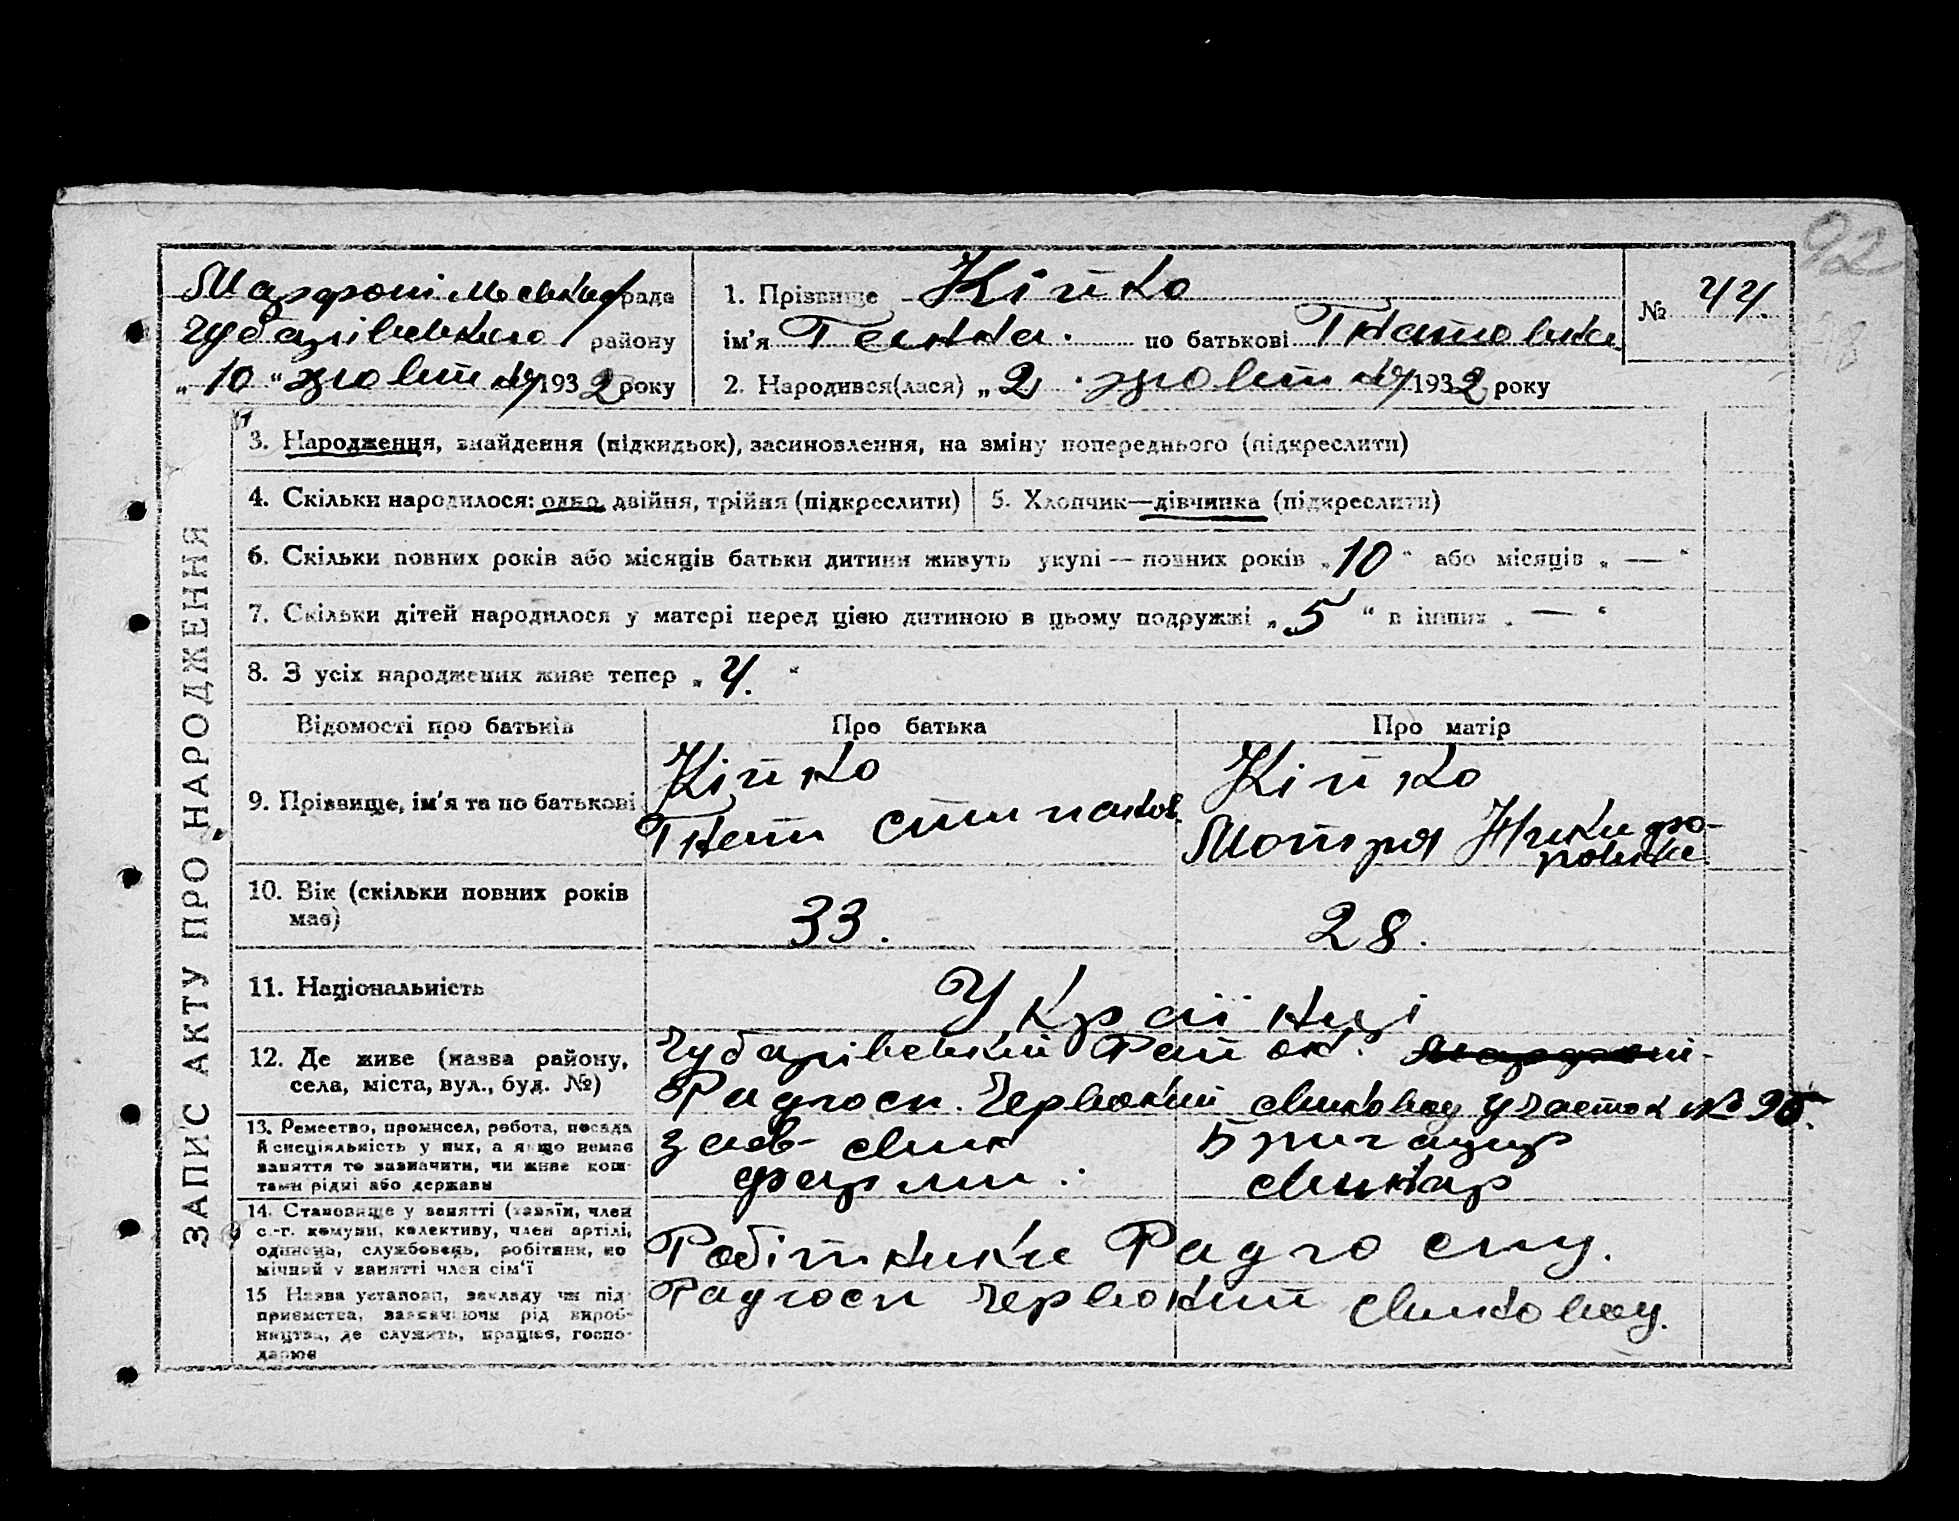 92
Марфопільська рада
Чубарівського району
„10“ жовтня 1932 року
1. Прізвище Кійко
ім'я Ганна. по батькові Гнатовна
2. Народився(лася) „2“ жовтня 1932 року
№ 44.
ЗАПИС АКТУ ПРО НАРОДЖЕННЯ
3. Народження, знайдення (підкидьок), засиновлення, на зміну попереднього (підкреслити)
4. Скільки народилося: одно, двійня, трійня (підкреслити)
5. Хлопчик—дівчинка (підкреслити)
6. Скільки повних років або місяців батьки дитини живуть укупі — повних років „10“ або місяців „—“
7. Скільки дітей народилося у матері перед цією дитиною в цьому подружжі „5“ в інших „—“
8. З усіх народжених живе тепер „4.“
Відомості про батьків
Про батька
Про матір
9. Прізвище, ім'я та по батькові
Кійко
Гнат
Кійко
Мотря Никифо-
ровна
10. Вік (скільки повних років
має)
33.
28.
11. Національність
Українці
12. Де живе (назва району,
села, міста, вул., буд. №)
Чубарівський Район.
Радгосп. Червоний участок №
13. Ремество, промисел, робота, посада
й спеціяльність у них, а якщо немає
заняття то зазначити, чи живе кош-
тами рідні або держави
зав- свин
ферми.
Бригадир
свинар
14. Становище у занятті (хазяїн, член
с.-г. комуни, колективу, член артілі,
одинець, службовець, робітник, по
мічний у занятті член сім'ї
Робітники Радгоспу.
15 Назва установи, закладу чи під-
приємства, зазначаючи рід вироб-
ництва, де служить, працює, госпо-
дарює
Радгосп Червоний